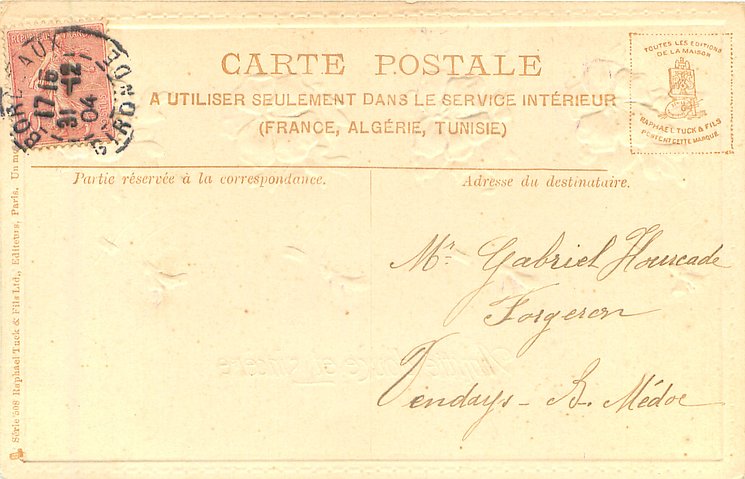 BORDEAUX
GIRONDE
17 15
31 -12
04
CARTE POSTALE
A UTILISER SEULEMENT DANS LE SERVICE INTÉRIEUR
(FRANCE, ALGÉRIE, TUNISIE)
TOUTES LES EDITIONS
DE LA MAISON
RAPHAEL TUCK & FILS
PORTENT CETTE MARQUE
Partie réservée à la correspondance.
Adresse du destinataire.
Mr. Gabriel Hourcade
Forgeron
Vendays - B. Médoc
Série 508 Raphael Tuck & Fils Ltd., Editeurs, Paris.